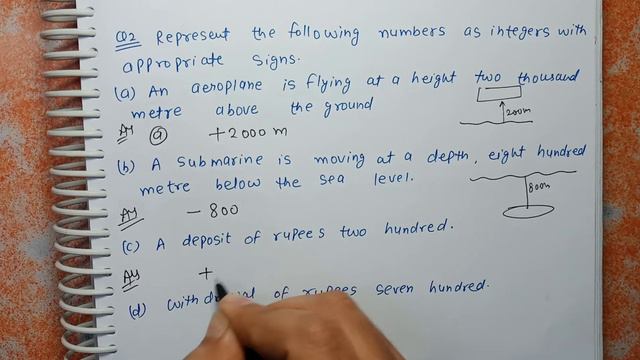 Q2 Represent the following numbers as integers with
appropriate signs.
(a) An aeroplane is flying at a height two thousand
metre above the ground
200m
Ay (a) +2000 m
(b) A submarine is moving at a depth, eight hundred
metre below the sea level.
800m
Ay - 800
(c) A deposit of rupees two hundred.
Ay +
(d) of rupees seven hundred.